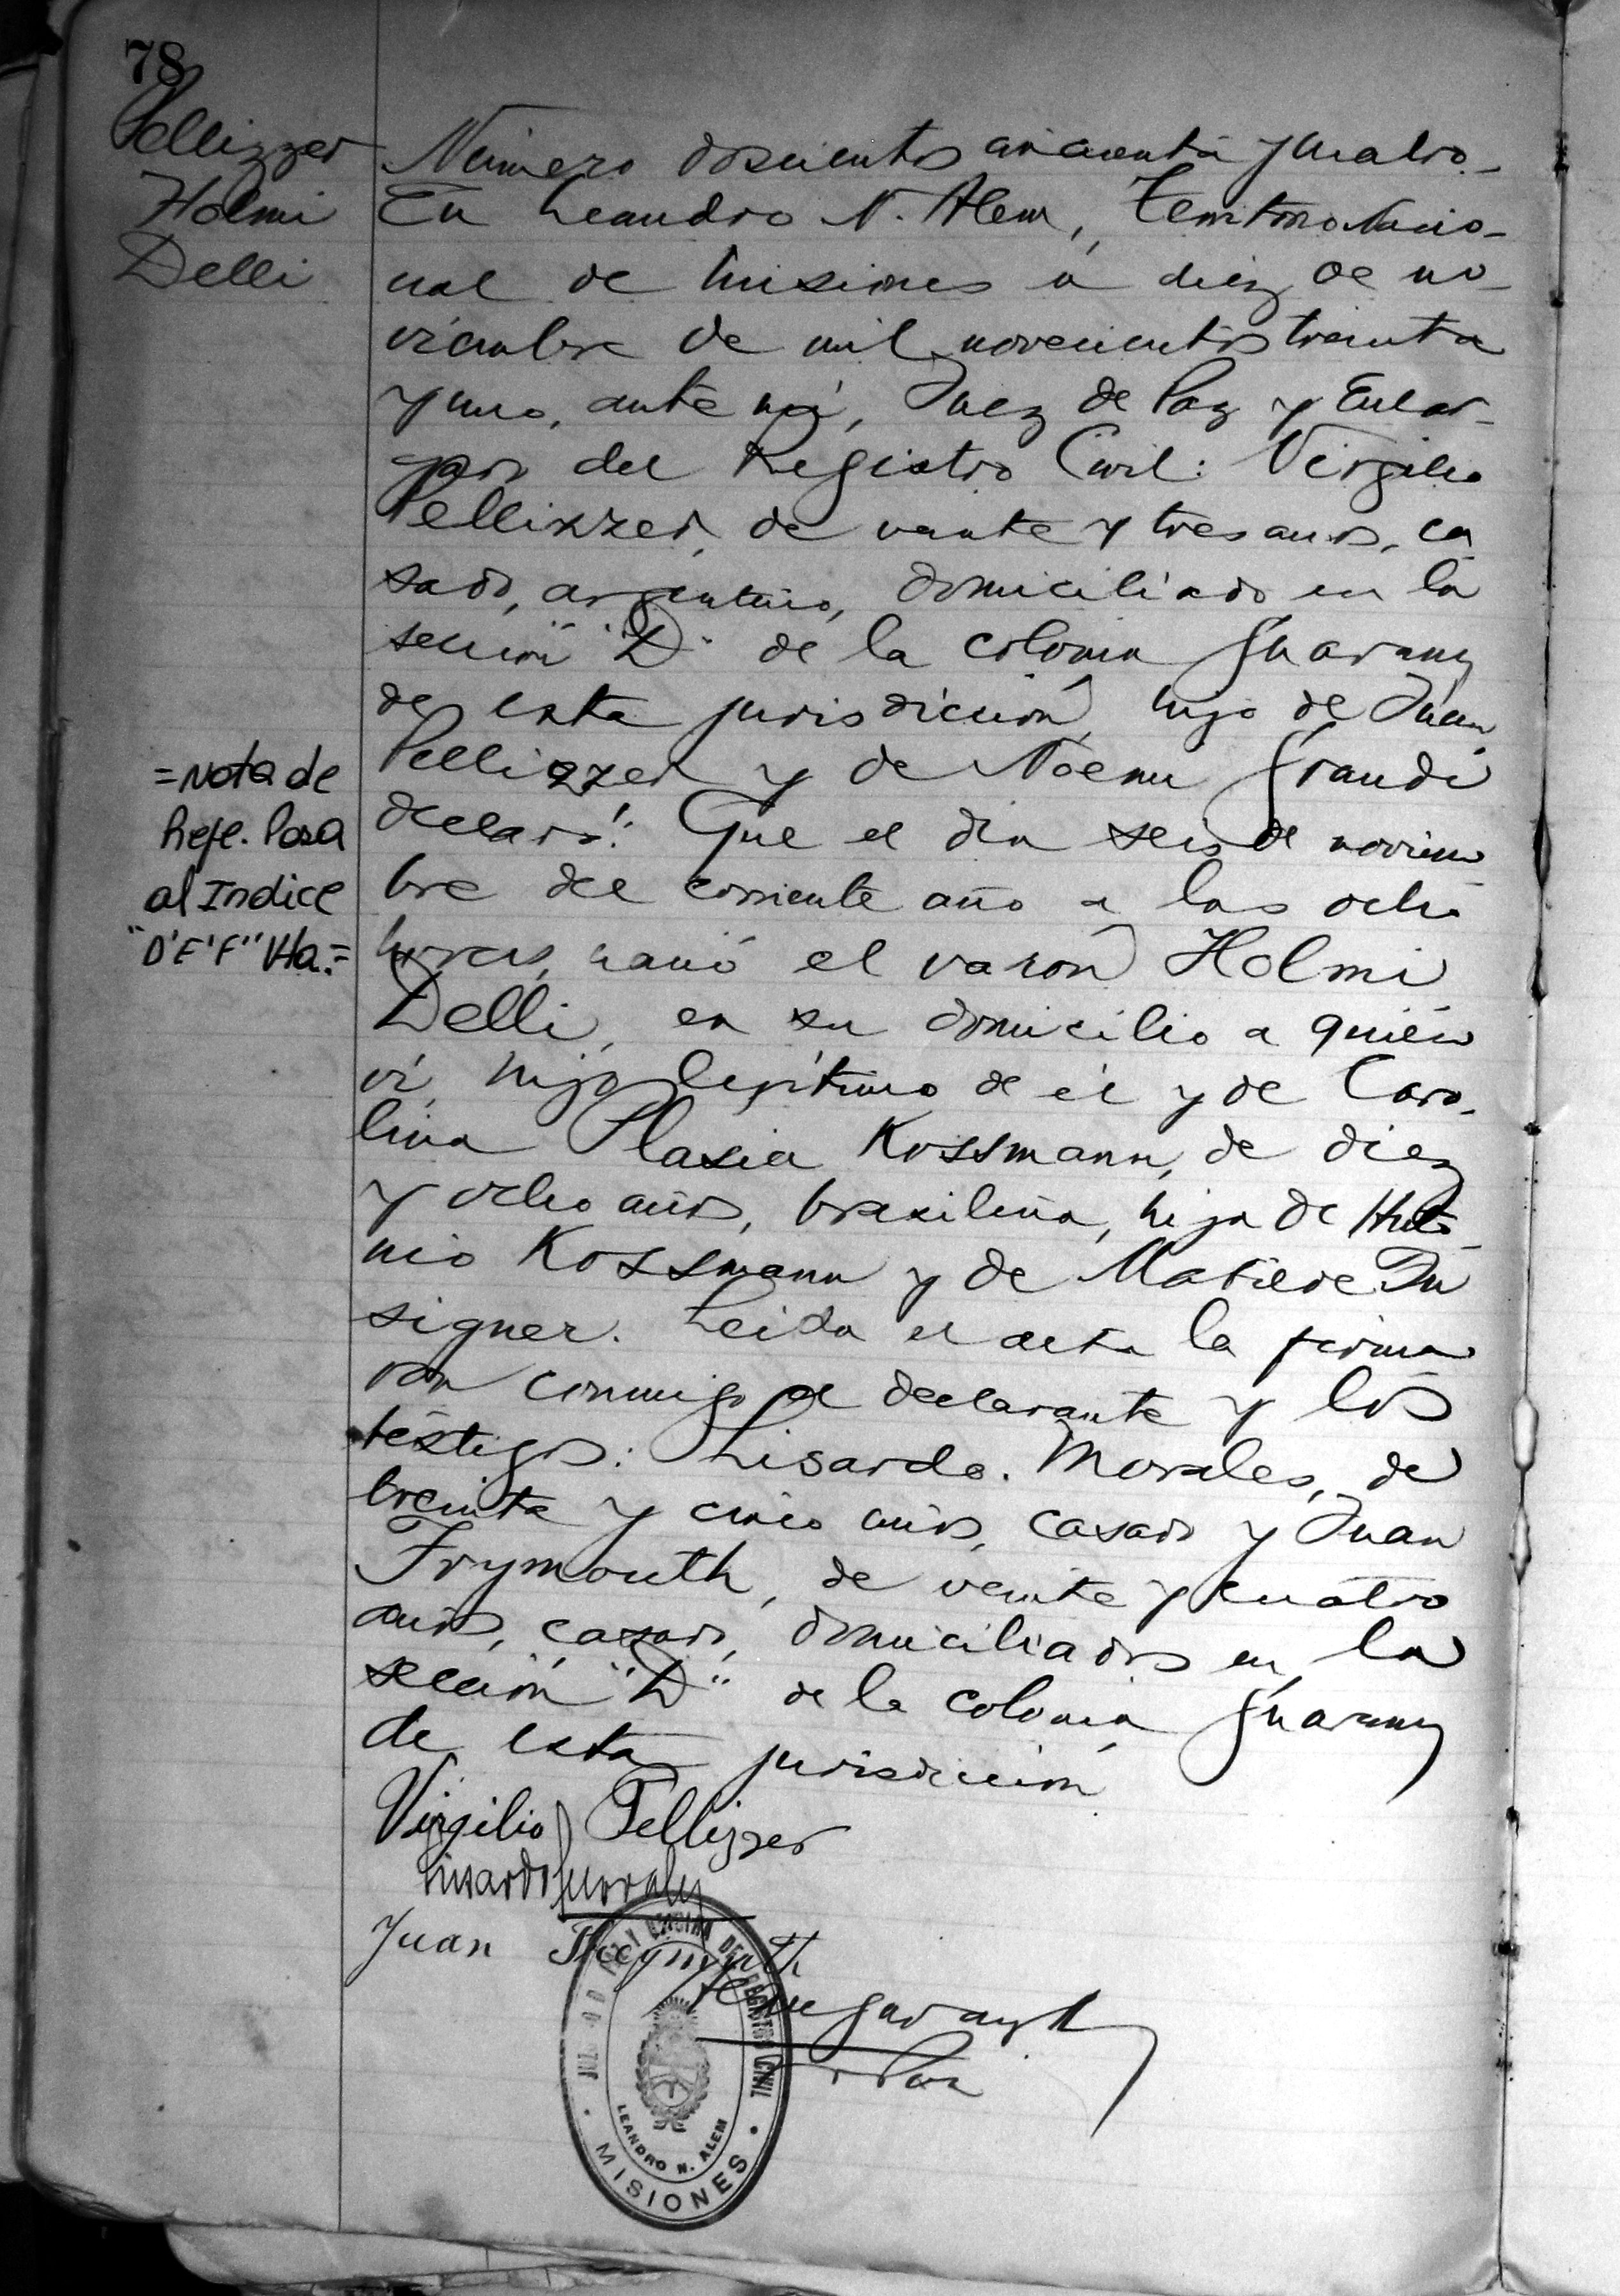 78
Pellizzer
Holmi
Delli
Número doscientos cincuenta y cuatro.-
En Leandro N. Alem, Territorio Nacio-
nal de Misiones a diez de no-
viembre de mil novecientos treinta
y uno, ante mí, Juez de Paz y Encar-
gado del Registro Civil: Virgilio
Pellizzer, de veinte y tres años, ca
sado, argentino, domiciliado en la
sección "D" de la colonia Guarany
de esta jurisdicción, hijo de Juan
Pellizzer y de Noemi Grandi
declaró: Que el día seis de noviem
bre del corriente año a las ocho
horas, nació el varón Holmi
Delli, en su domicilio a quién
ví, hijo legítimo de él y de Caro-
lina Plasia Kossmann, de diez
y ocho años, brasileña, hija de Anto-
nio Kossmann y de Matilde
signer. Leída el acta la firma
ron conmigo el declarante y los
testigos: Lisardo. Morales, de
treinta y cinco años, casado y Juan
Frymouth, de veinte y cuatro
años, casado, domiciliados en la
sección "D" de la colonia Guarany
de esta jurisdicción
=Nota de
Refe. Pasa
al Indice
"D'E'F" Vta.=
Virgilio Pellizzer
Lisardo Morales
Juan
DEL REGISTRO CIVIL
LEANDRO N. ALEM
MISIONES